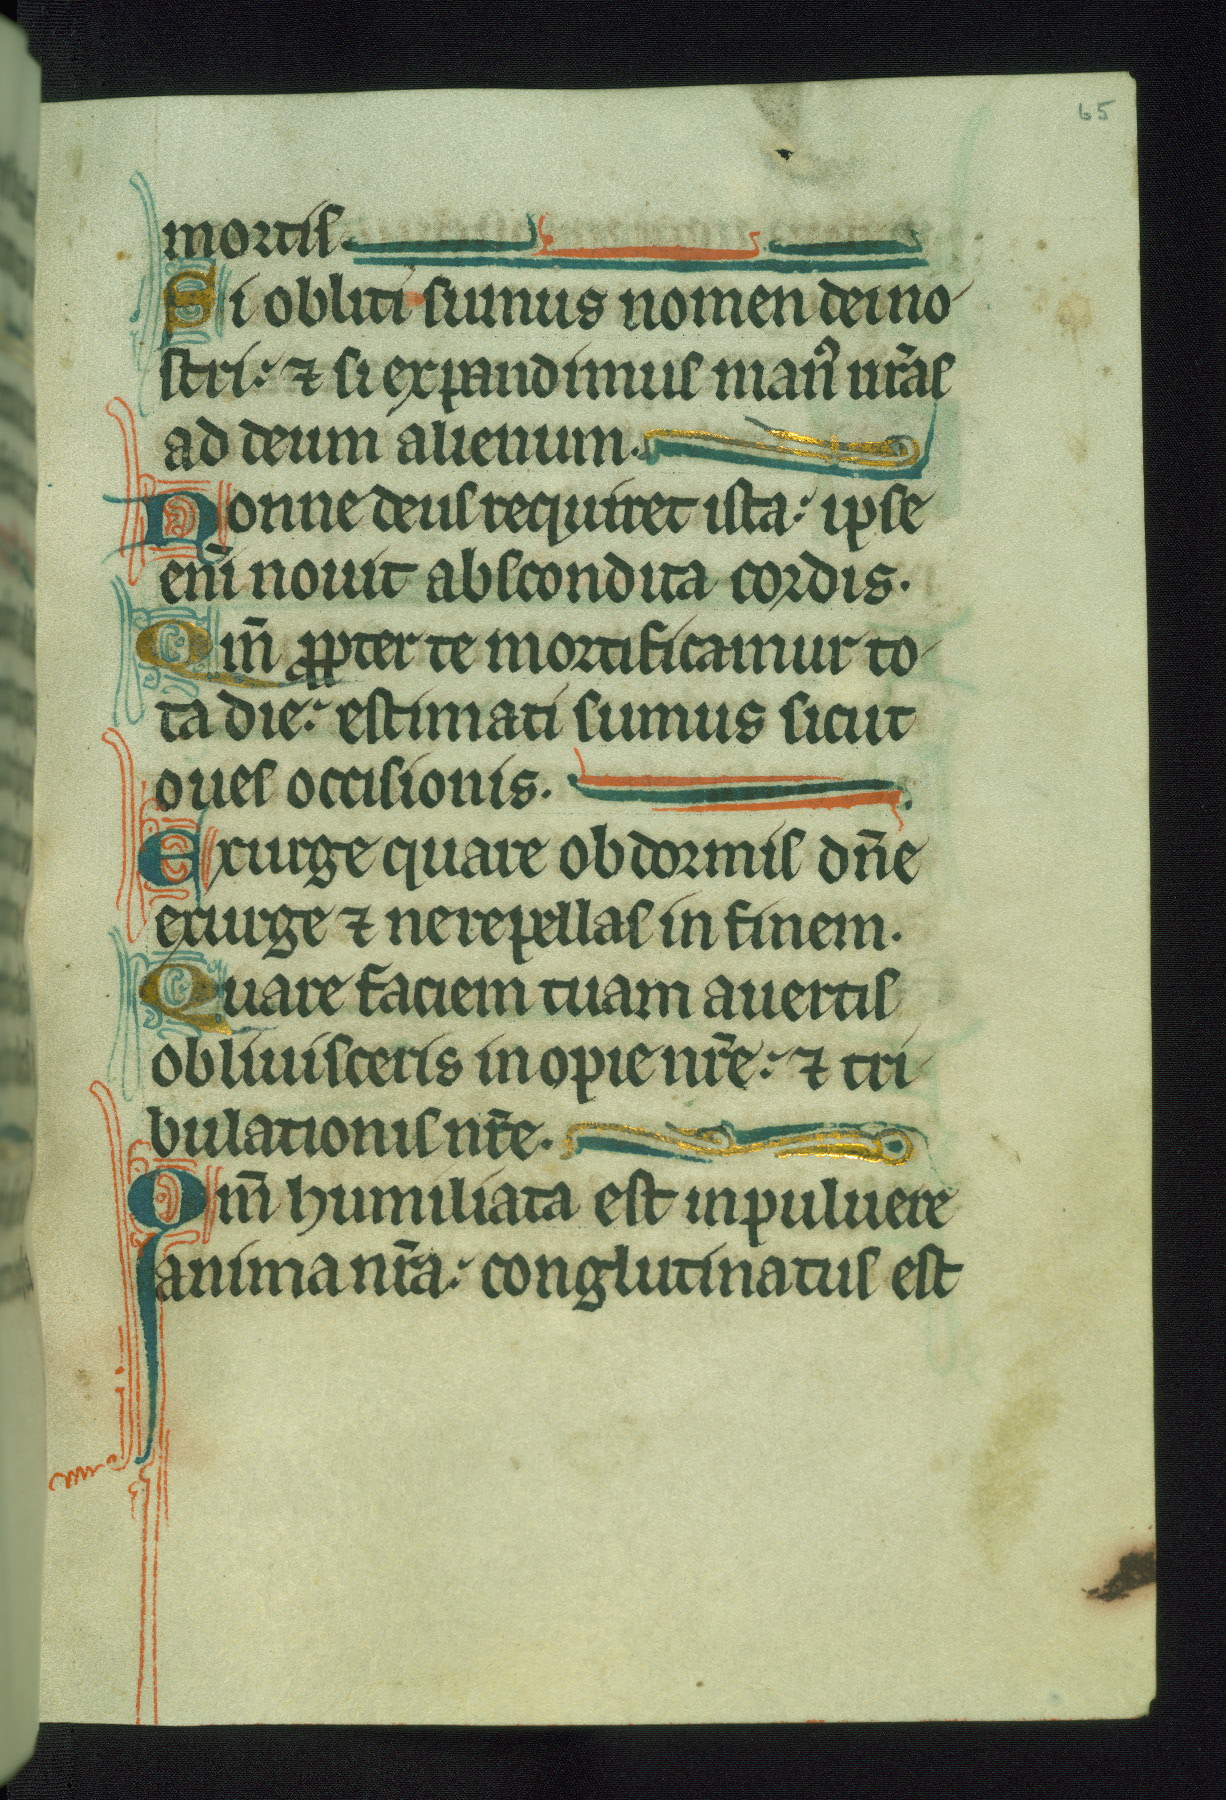 65
mortis.
Si obliti sumus nomen dei no
stri: ⁊ si expandimus manꝰ nr̃as
ad deum alienum.
Nonne deus requiret ista: ipse
eni̅ nouit abscondita cordis.
Qm̅ ꝓpter te mortificamur to
ta die: estimati sumus sicut
oues occisionis.
Exurge quare obdormis dn̅e
exurge ⁊ ne repellas in finem.
Quare faciem tuam auertis
obliuisceris inopie nr̃e: ⁊ tri
bulationis nr̃e.
Qm̅ humiliata est in puluere
anima nr̃a: conglutinatus est